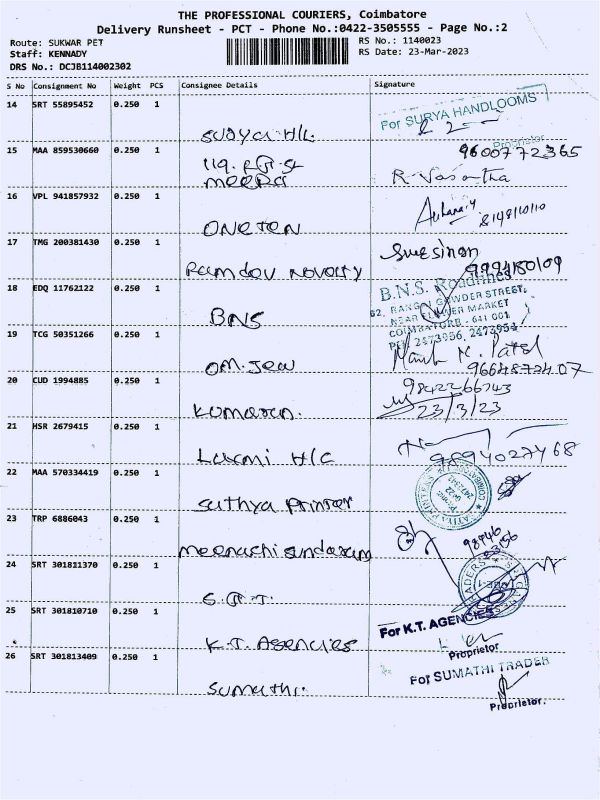 THE PROFESSIONAL COURIERS, Coimbatore
Delivery Runsheet - PCT - Phone No.:0422-3505555 - Page No.:2
Route: SUKWAR PET
Staff: KENNADY
DRS No.: DCJB114002302
RS No.: 1140023
RS Date: 23-Mar-2023
S No Consignment No Weight PCS Consignee Details Signature
14 SRT 55895452 0.250 1
For SURYA HANDLOOMS
Surya H/L
Proprietor
15 MAA 859530660 0.250 1
9600772365
meera
R. Vasantha
16 VPL 941857932 0.250 1
ONE TEN
8148110110
17 TMG 200381430 0.250 1
Ramdov Novolty
9994180109
18 EDQ 11762122 0.250 1
B.N.S. Roadlines
NEAR FLOWER MARKET
COIMBATORE - 641 001
2473956, 2473954
BNS
19 TCG 50351266 0.250 1
OM.Jew
K. Patel
20 CUD 1994885 0.250 1
9842266743
23/3/23
Kumaran.
21 HSR 2679415 0.250 1
Laxmi H/C
9894027468
22 MAA 570334419 0.250 1
Sathya Printer
23 TRP 6886043 0.250 1
meenachi sundaram
24 SRT 301811370 0.250 1
25 SRT 301810710 0.250 1
For K.T. AGENCIES
K.T. Agencies
Proprietor
26 SRT 301813409 0.250 1
For SUMATHI TRADER
Sumathi.
Proprietor.